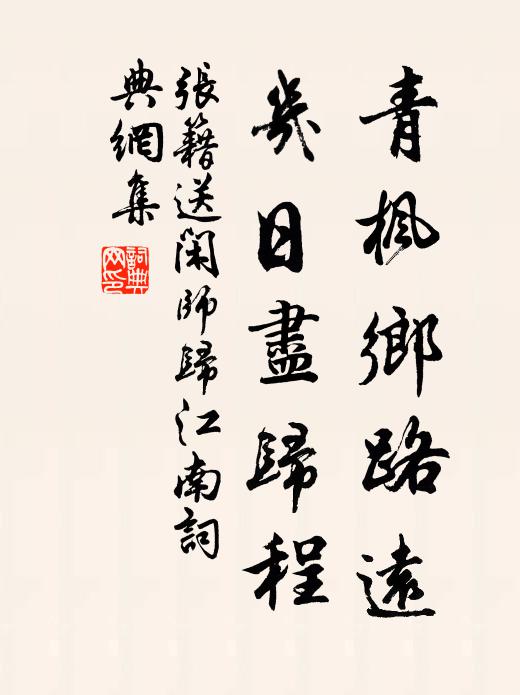 青楓鄉路遠
幾日盡歸程
張籍送閑師歸江南詞
典網集
詞典网印